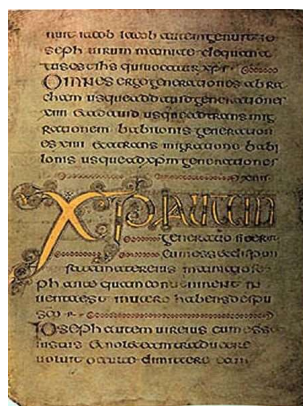 nuit iacob Iacob autem genuit io
seph uirum mariae de qua na
tus est ihs qui uocatur xps
Omnes ergo generationes abra
cham usque ad dauid generationes
xiiii & a dauid usque ad transmig
rationem babilonis generation
es xiiii & a transmigratione babi
lonis usque ad xpm generationes
xiiii
XPI autem
generatio sic erat
cum esset desponsata
mater eius maria iose
ph ante quam conuenirent in
uenta est in utero habens de spu
sco
Ioseph autem uir eius cum esset
iustus & nollet eam traducere
uoluit occulte dimittere eam